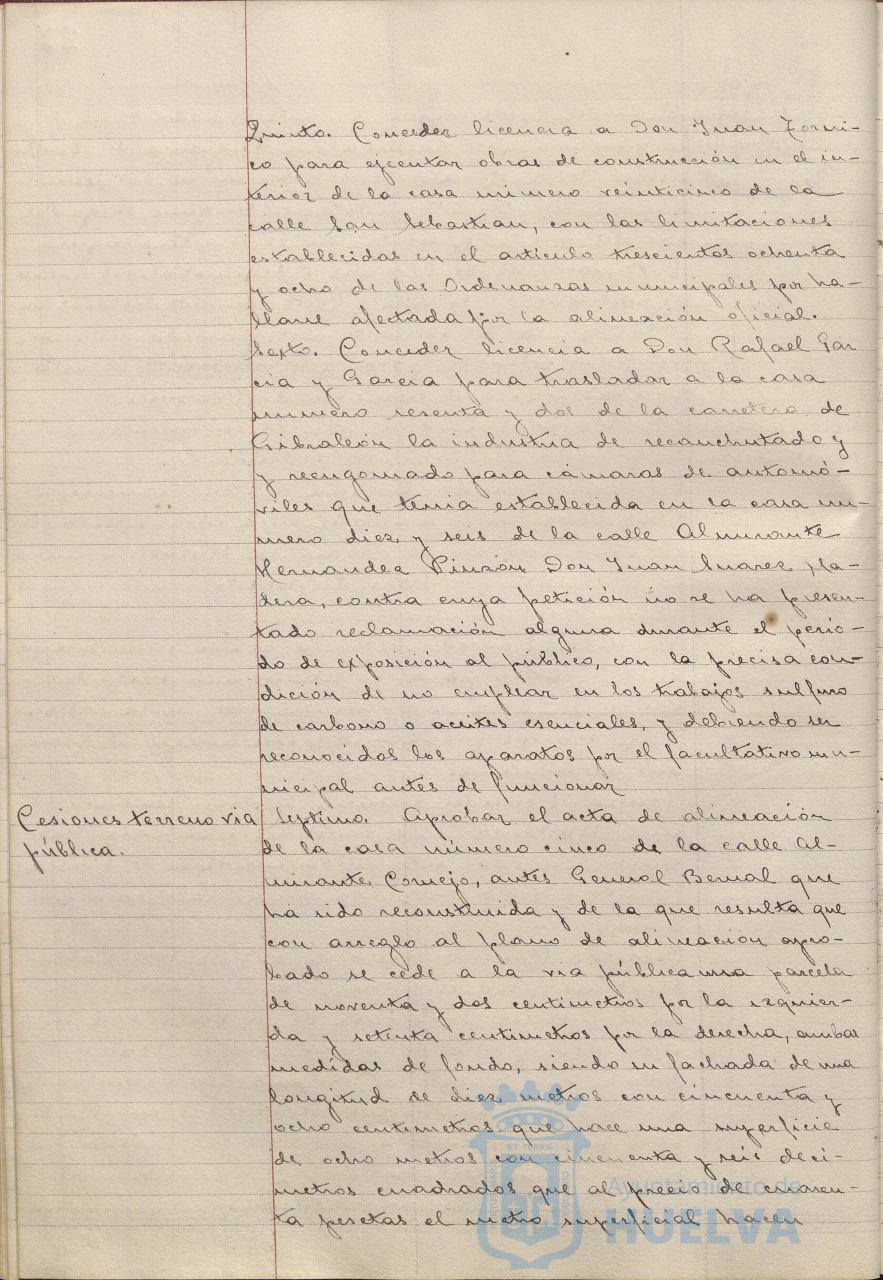 Quinto. Conceder licencia a Don Juan Formi-
co para ejecutar obras de construcción en el in-
terior de la casa número veinticinco de la
calle San Sebastian, con las limitaciones
establecidas en el artículo trescientos ochenta
y ocho de las Ordenanzas municipales por ha-
llarse afectada por la alineación oficial.
Sexto. Conceder licencia a Don Rafael Gar
cia y Garcia para trasladar a la casa
numero sesenta y dos de la carretera de
Gibraleón la industria de recauchutado y
y reengomado para cámaras de automó-
viles que tenia establecida en la casa nu-
mero diez y seis de la calle Almirante
Hernandez Pinzón Don Juan Suarez Ma-
dera, contra cuya petición no se ha presen-
tado reclamación alguna durante el perio-
do de exposición al público, con la precisa con-
dición de no emplear en los trabajos sulfuro
de carbono o aceites esenciales, y debiendo ser
reconocidos los aparatos por el facultativo mu-
nicipal antes de funcionar
Cesiones terreno via
pública.
Septimo. Aprobar el acta de alineación
de la casa número cinco de la calle Al-
mirante Cornejo, antes General Bernal que
ha sido reconstruida y de la que resulta que
con arreglo al plano de alineación apro-
bado se cede a la via pública una parcela
de noventa y dos centimetros por la izquier-
da y setenta centimetros por la derecha, ambas
medidas de fondo, siendo su fachada de una
longitud de diez metros con cincuenta y
ocho centimetros que hace una superficie
de ocho metros con cincuenta y seis deci-
metros cuadrados que al precio de cuaren-
ta pesetas el metro superficial hacen
Ayuntamiento de
HUELVA